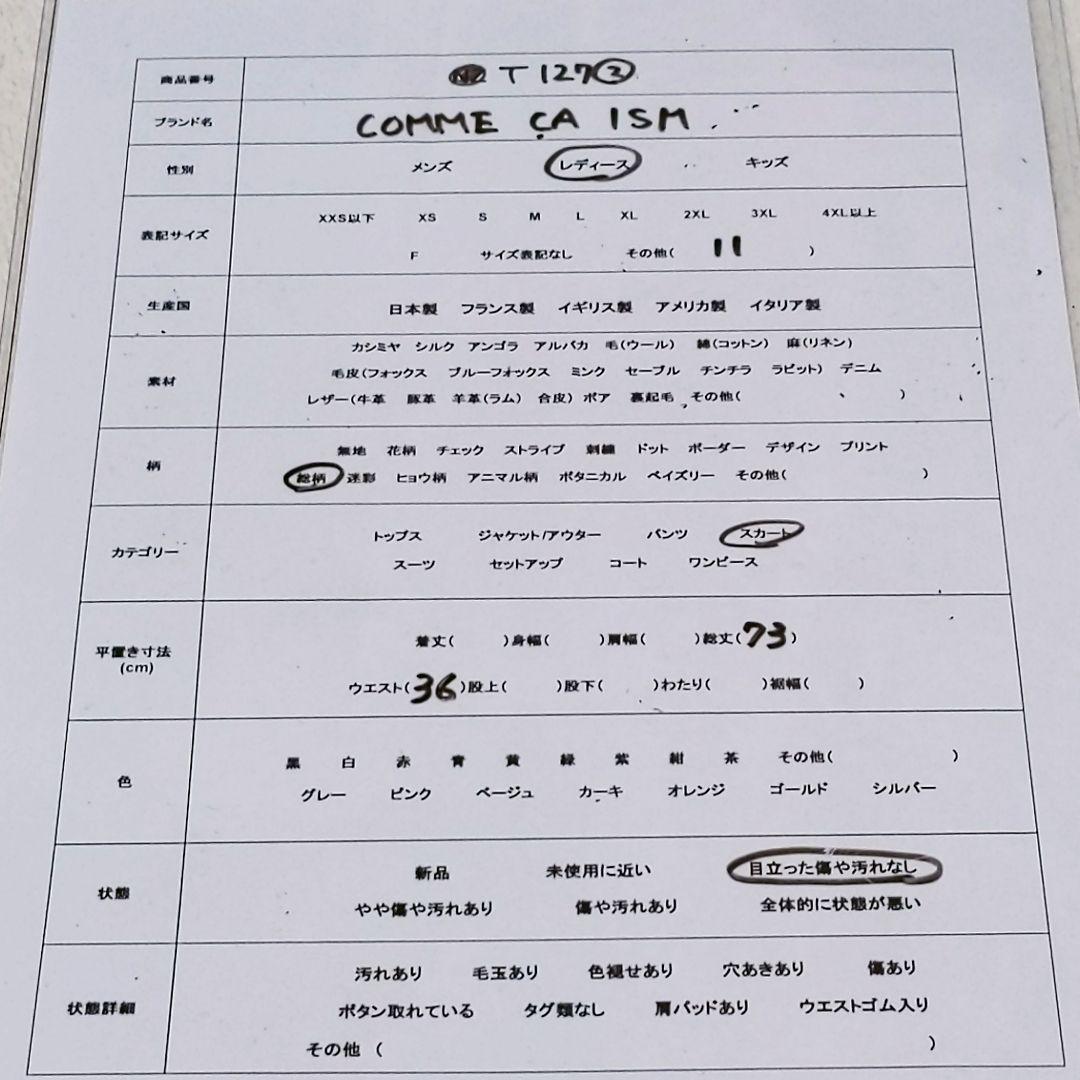 商品番号 T127③
ブランド名 COMME ÇA ISM
性別 メンズ レディース キッズ
表記サイズ
XXS以下 XS S M L XL 2XL 3XL 4XL以上
F サイズ表記なし その他( 11 )
生産国 日本製 フランス製 イギリス製 アメリカ製 イタリア製
素材
カシミヤ シルク アンゴラ アルパカ 毛(ウール) 綿(コットン) 麻(リネン)
毛皮(フォックス ブルーフォックス ミンク セーブル チンチラ ラビット) デニム
レザー(牛革 豚革 羊革(ラム) 合皮) ボア 裏起毛 その他( )
柄
無地 花柄 チェック ストライプ 刺繍 ドット ボーダー デザイン プリント
総柄 迷彩 ヒョウ柄 アニマル柄 ボタニカル ペイズリー その他( )
カテゴリー
トップス ジャケット/アウター パンツ スカート
スーツ セットアップ コート ワンピース
平置き寸法
(cm)
着丈( )身幅( )肩幅( )総丈(73)
ウエスト(36)股上( )股下( )わたり( )裾幅( )
色
黒 白 赤 青 黄 緑 紫 紺 茶 その他( )
グレー ピンク ベージュ カーキ オレンジ ゴールド シルバー
状態
新品 未使用に近い 目立った傷や汚れなし
やや傷や汚れあり 傷や汚れあり 全体的に状態が悪い
状態詳細
汚れあり 毛玉あり 色褪せあり 穴あきあり 傷あり
ボタン取れている タグ類なし 肩パッドあり ウエストゴム入り
その他 ( )